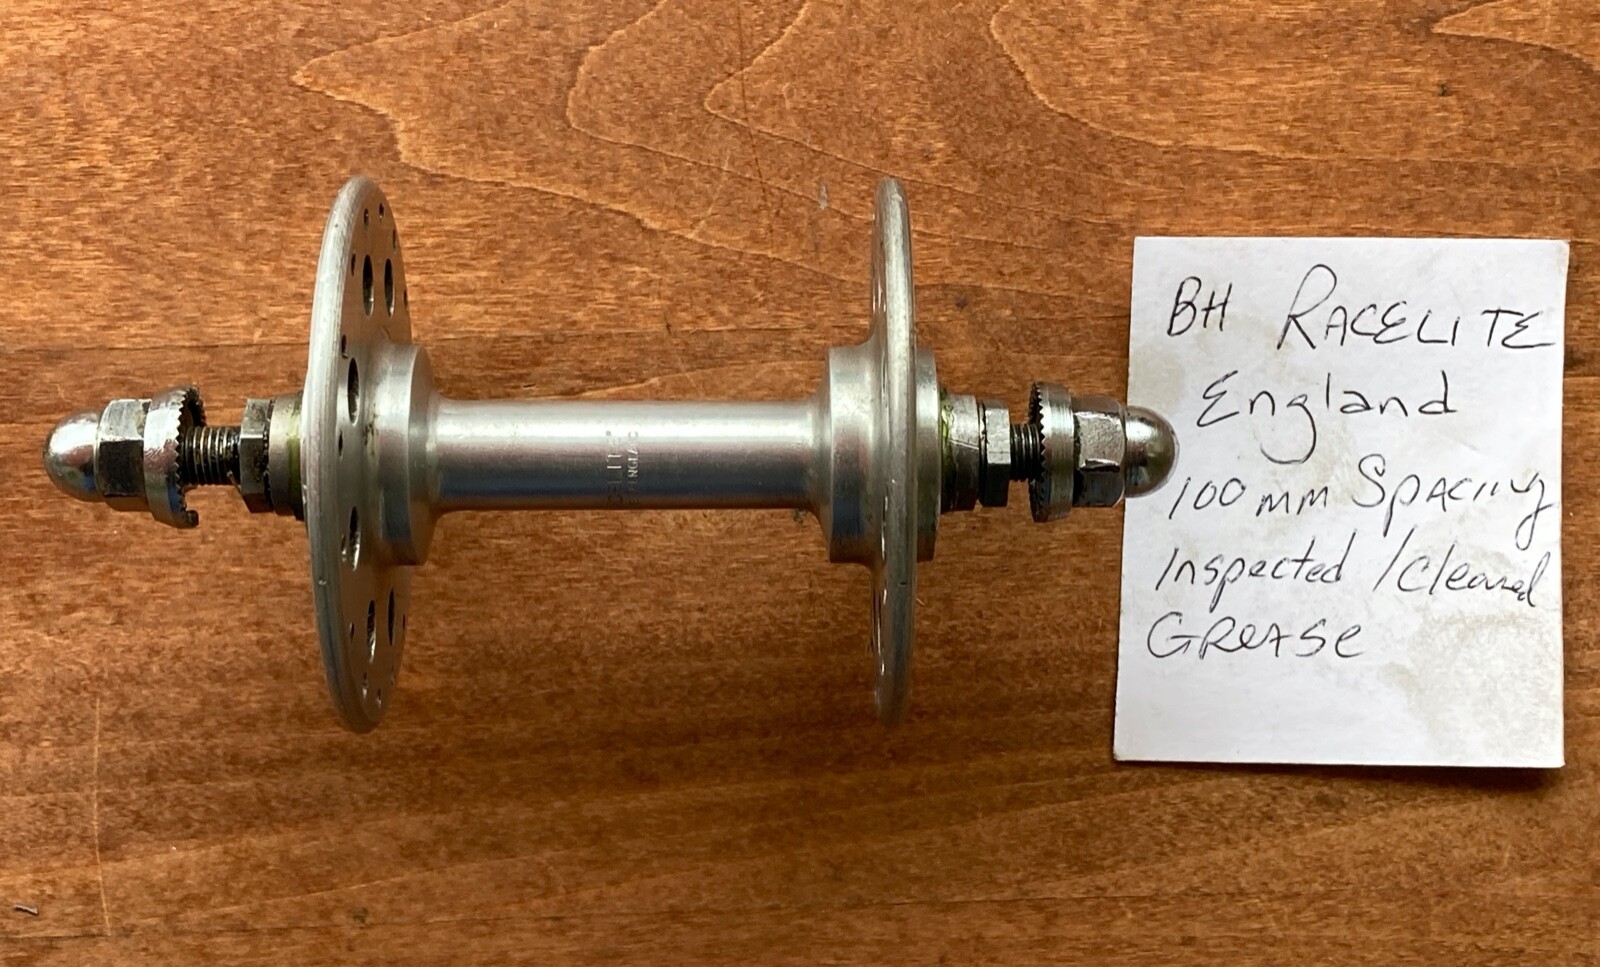 BH RACELITE
England
100 mm Spacing
Inspected / Cleaned
GREASE